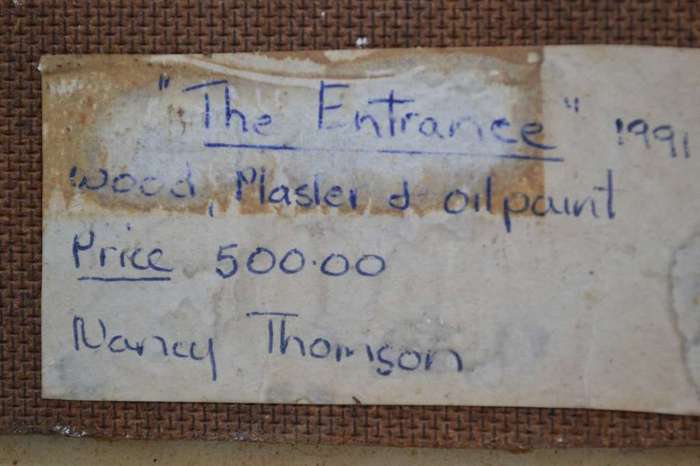 "The Entrance" 1991
wood, Plaster & oil paint
Price 500.00
Nancy Thomson